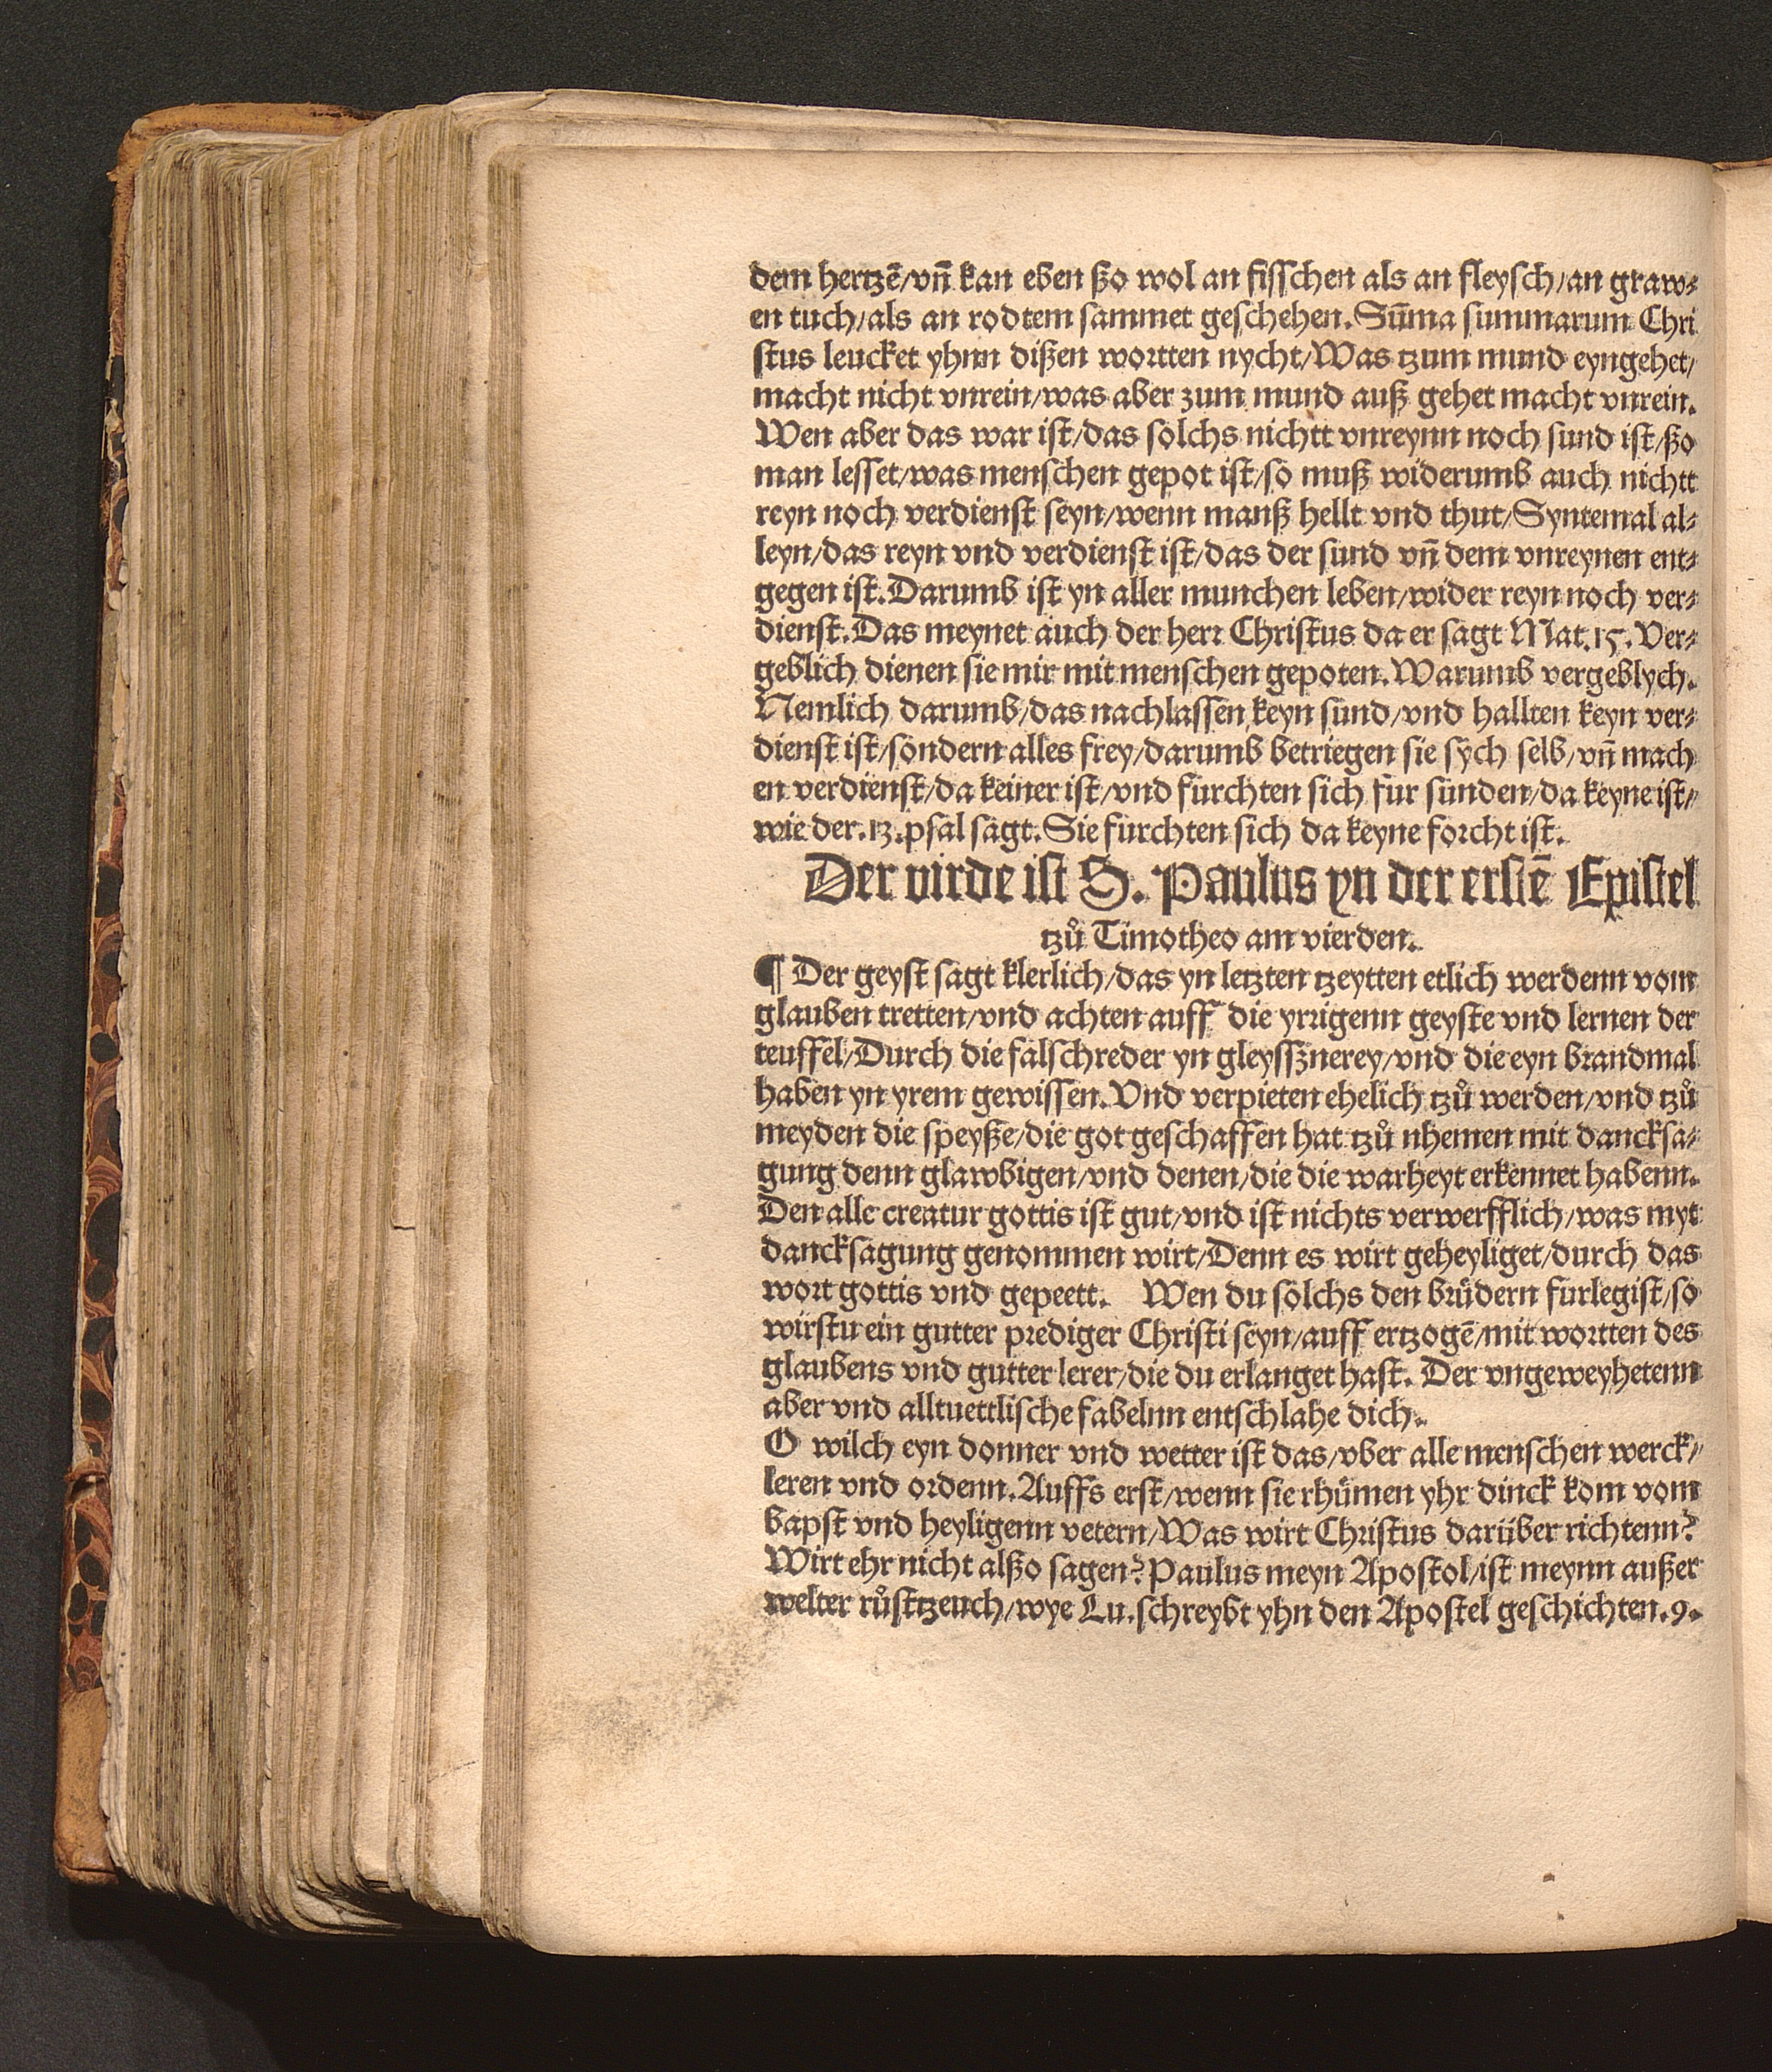 dem hertzē/vn̄ kan eben ßo wol an fisschen als an fleysch/an graw⸗
en tuch/als an rodtem sammet geschehen. Sūma summarum Chri
stus leucket yhnn dißen wortten nycht/Was tzum mund eyngehet/
macht nicht vnrein/was aber zum mund auß gehet macht vnrein.
Wen aber das war ist/das solchs nichtt vnreynn noch sund ist/ßo
man lesset/was menschen gepot ist/so muß widerumb auch nichtt
reyn noch verdienst seyn/wenn manß hellt vnd thut/Syntemal al⸗
leyn/das reyn vnd verdienst ist/das der sund vn̄ dem vnreynen ent⸗
gegen ist. Darumb ist yn aller munchen leben/wider reyn noch ver⸗
dienst. Das meynet auch der herr Christus da er sagt Mat.15. Ver⸗
geblich dienen sie mir mit menschen gepoten. Warumb vergeblych.
Nemlich darumb/das nachlassen keyn sund/vnd hallten keyn ver⸗
dienst ist/sondern alles frey/darumb betriegen sie sych selb/vn̄ mach
en verdienst/da keiner ist/vnd furchten sich fur sunden/da keyne ist/
wie der.13.psal sagt. Sie furchten sich da keyne forcht ist.
Der virde ist S. Paulus yn der erstē Epistel
tzů Timotheo am vierden.
¶ Der geyst sagt klerlich/das yn letzten tzeytten etlich werdenn vom
glauben tretten/vnd achten auff die yrrigenn geyste vnd lernen der
teuffel/Durch die falschreder yn gleysſznerey/vnd die eyn brandmal
haben yn yrem gewissen. Vnd verpieten ehelich tzů werden/vnd tzů
meyden die speyße/die got geschaffen hat tzů nhemen mit dancksa⸗
gung denn glawbigen/vnd denen/die die warheyt erkennet habenn.
Den alle creatur gottis ist gut/vnd ist nichts verwerfflich/was myt
dancksagung genommen wirt/Denn es wirt geheyliget/durch das
wort gottis vnd gepeett. Wen du solchs den brůdern furlegist/so
wirstu ein gutter prediger Christi seyn/auff ertzogē/mit wortten des
glaubens vnd gutter lerer/die du erlanget hast. Der vngeweyhetenn
aber vnd alltuettlische fabelnn entschlahe dich.
O wilch eyn donner vnd wetter ist das/vber alle menschen werck/
leren vnd ordenn. Auffs erst/wenn sie rhůmen yhr dinck kom vom
bapst vnd heyligenn vetern/Was wirt Christus darüber richtenn?
Wirt ehr nicht alßo sagen? Paulus meyn Apostol/ist meynn außer
welter růsttzeuch/wye Lu. schreybt yhn den Apostel geschichten.9.